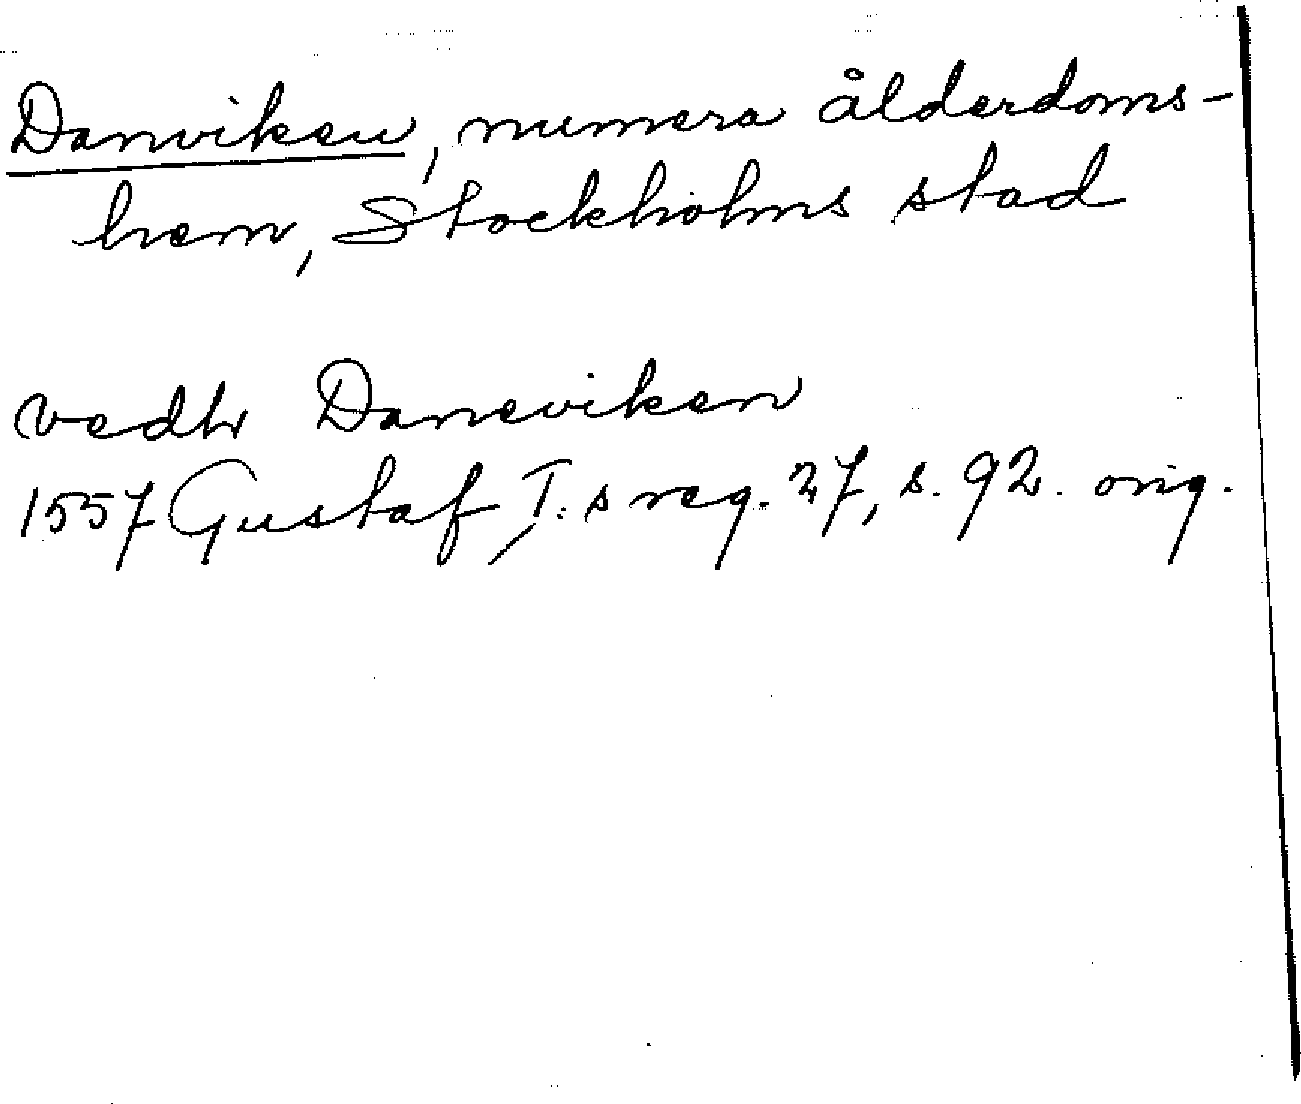 Danviken, numera ålderdoms-
hem, Stockholms stad
vedh Daneviken
1557 Gustaf I:s reg. 27, s. 92. orig.